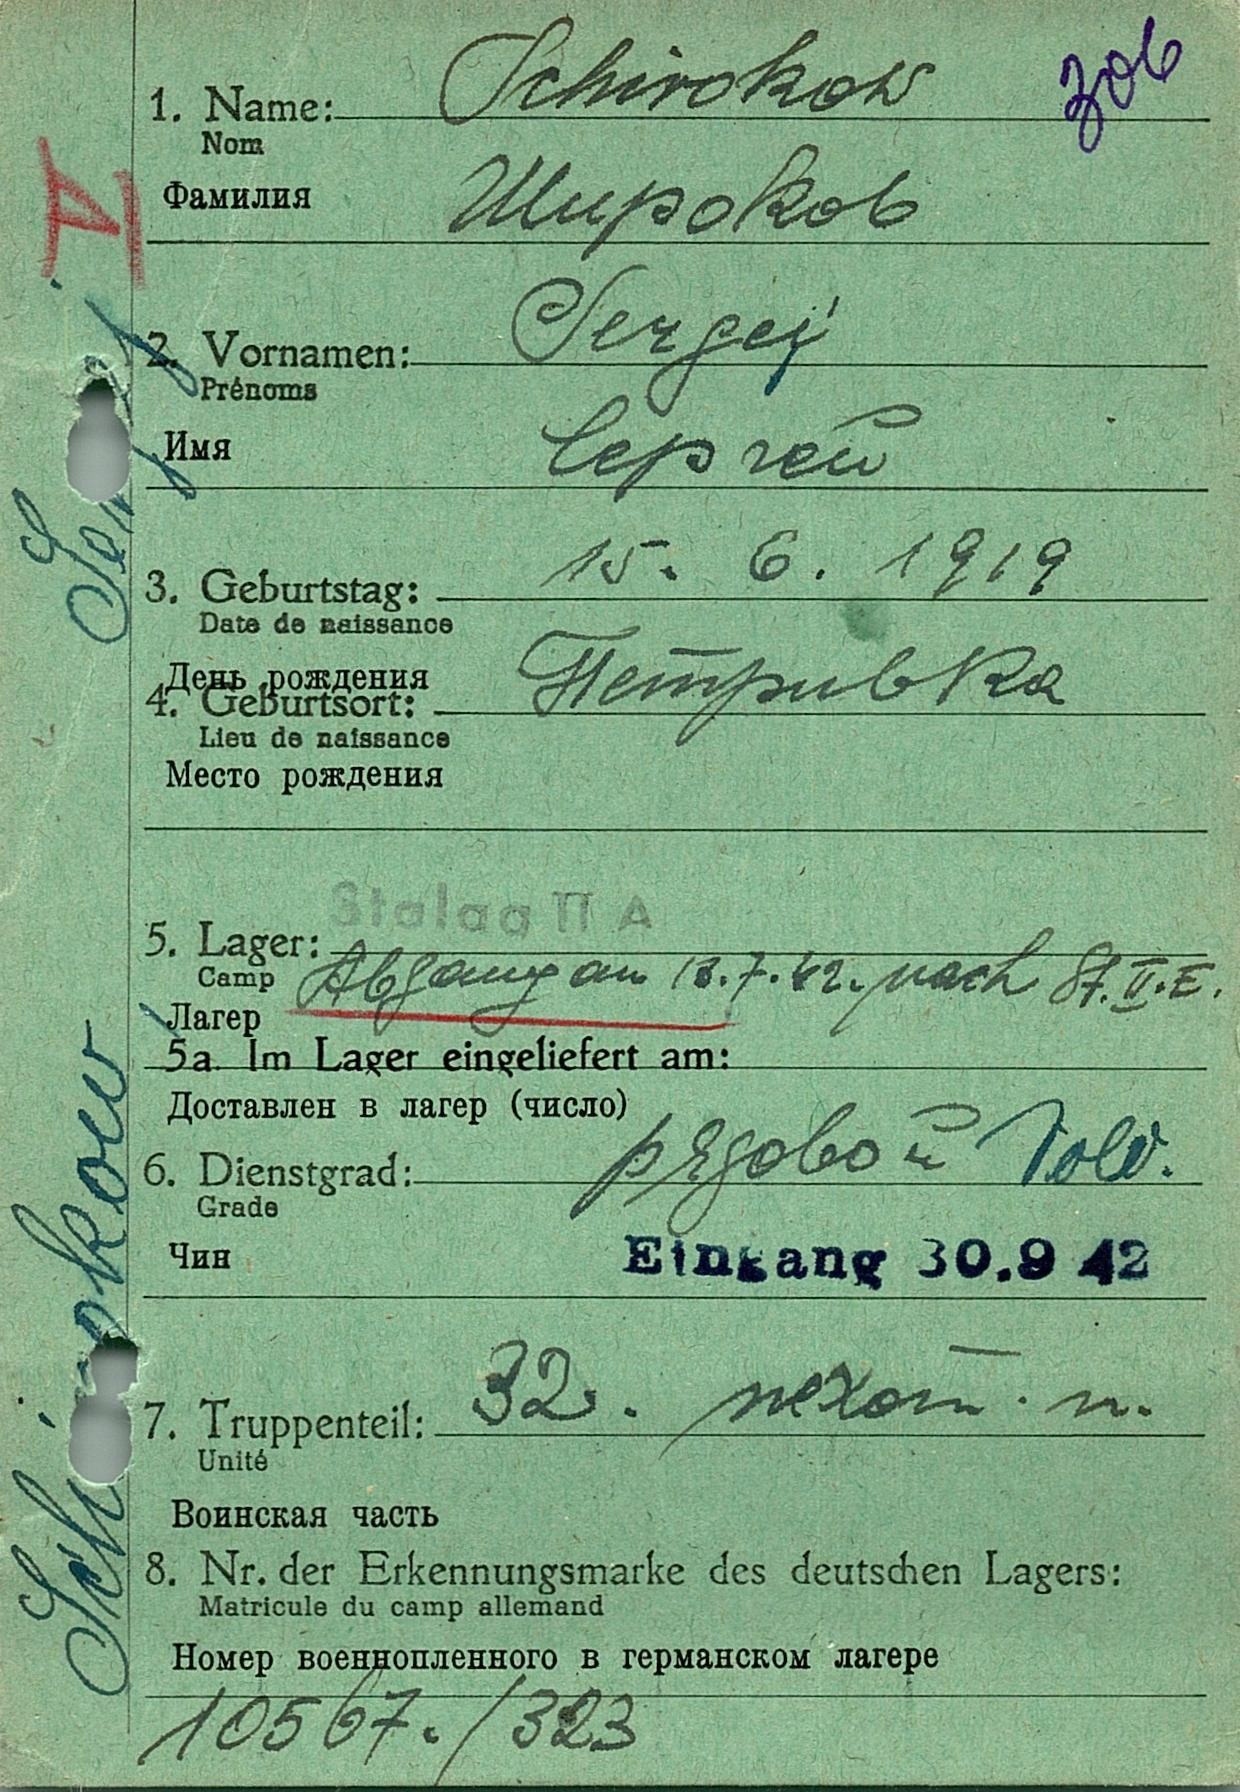 Schirokow
306
1. Name:
Nom
Широков
Фамилия
Sergej
2. Vornamen:
Prénoms
Сергей
Имя
15. 6. 1919
3. Geburtstag:
Date de naissance
День рождения
Петривка
4. Geburtsort:
Lieu de naissance
Место рождения
Stalag II A
5. Lager:
Camp
Abgang am 13.7.42. nach St. II. E.
Лагер
5a. Im Lager eingeliefert am:
Доставлен в лагер (число)
рядовой Sold.
6. Dienstgrad:
Grade
Чин
Eingang 30.9 42
32. пехот. п.
7. Truppenteil:
Unité
Воинская часть
8. Nr. der Erkennungsmarke des deutschen Lagers:
Matricule du camp allemand
Номер военнопленного в германском лагере
10567./323
Schirokow, Sergej